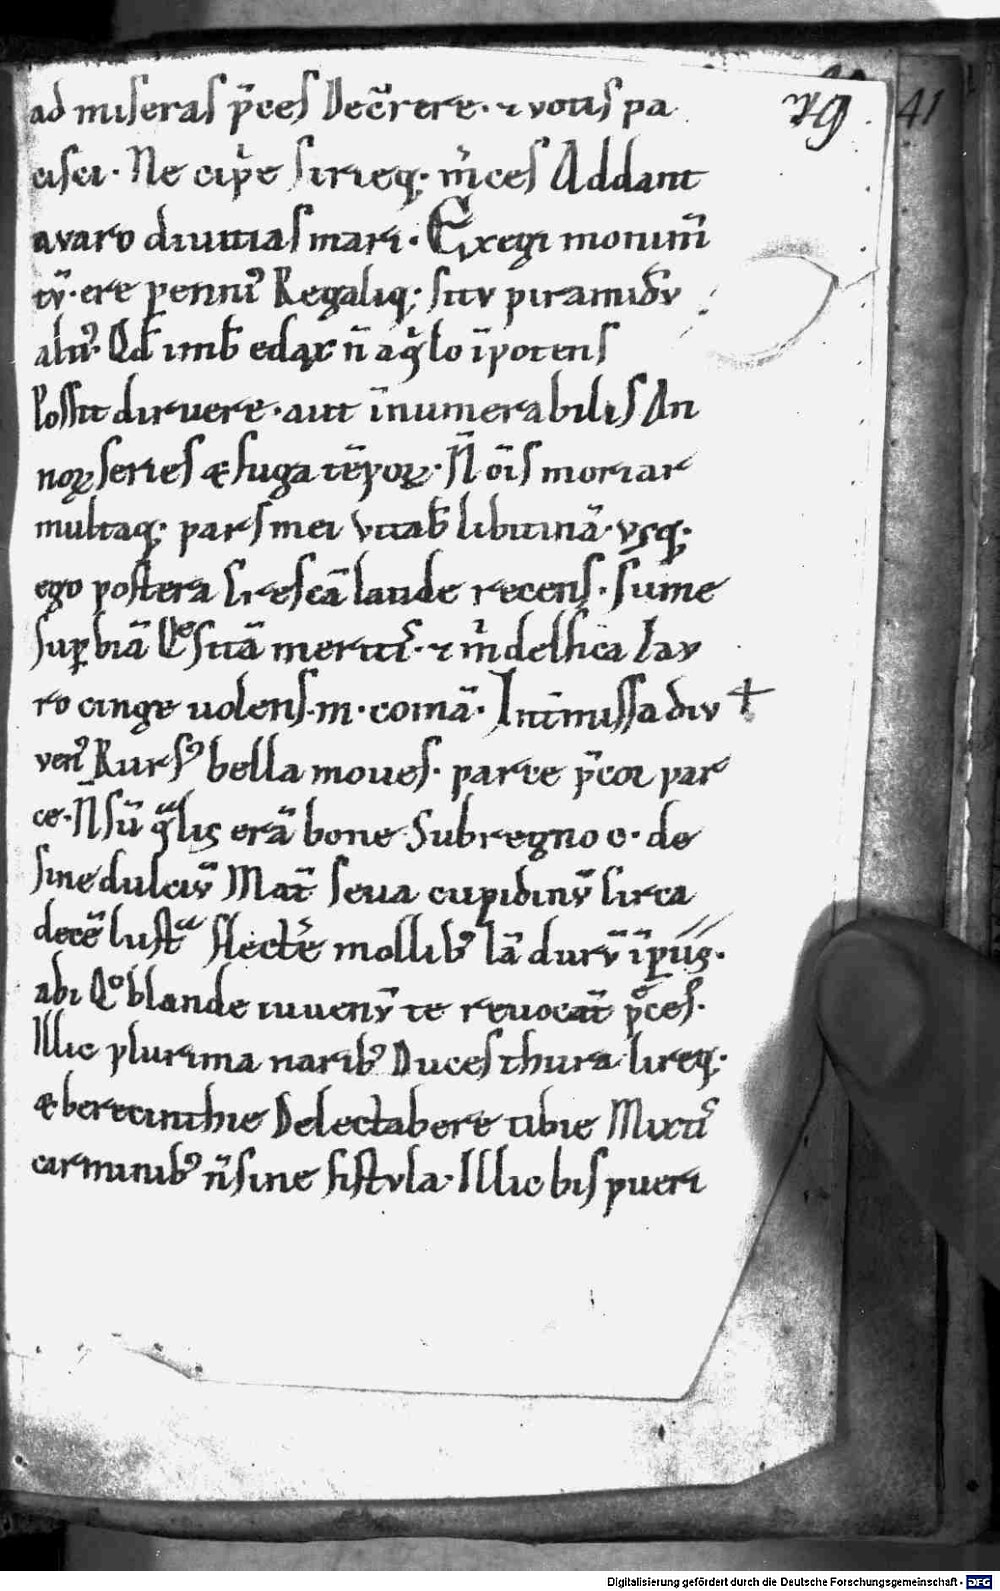 79
41
ad miseras p̄ces Decr̄rere · ⁊ votis pa
cisci · Ne cip̄e sirieq; · m̄ces Addant
avaro divitias mari · Exegi monum̄
tv̄ · ere penni᾽ Regaliq; · sitv piramidv
alti᾽ · Qd̄ imb̄ edax n̄ aq̇lo īpotens
Possit diruere · aut īnumerabilis An
noꝝ series æ fuga tēpoꝝ · N̄ oīs moriar
multaq; pars mei vitab̄ libitinā · vsq;
ego postera Crescā laude recens · sume
supbiā Qesitā meritis᾽ · ⁊ m̄ delfica lav
ro cinge uolens · m · comā · Int̄missa div +
ven᾽ Rurs᾽ bella moues · parce p̄cor par
ce · N̄ sū qlis erā bone Sub regno c · de
sine dulciv̄ Mat̄ seua cupidinv̄ Circa
decē lustra flecte᾽ mollib᾽ iā durv̄ īpiis ·
abi Qo blande iuuenv̄ te reuocat̄ p̄ces ·
Illic plurima narib᾽ Duces thura · lireq;
æ berecinthie Delectabere tibie Mixti᾽
carminib᾽ n̄ sine fistvla · Illic bis pueri
Digitalisierung gefördert durch die Deutsche Forschungsgemeinschaft · DFG